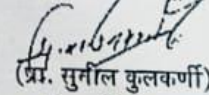 (प्रा. सुनील कुलकर्णी)